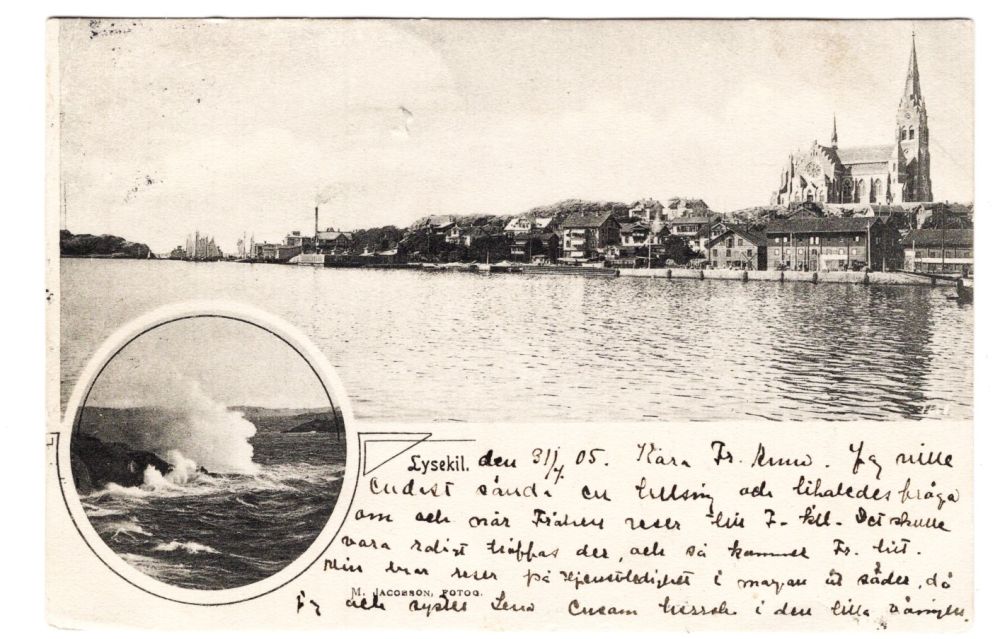 Lysekil. den 31/7 05. Kära Fr. Jag ville
endast sända en hälsning och likaledes fråga
om och när Fröken reser till Det skulle
vara roligt träffas der, och så kommer Fr. hit.
Min bror reser på tjenstledighet i morgon åt söder, då
M. JACOBSON, FOTOG.
jag och syster Lena i den lilla våningen.